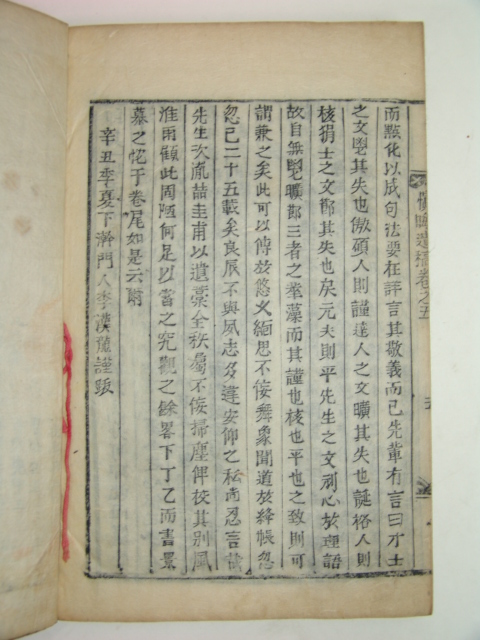 而點化以成句法要在詳言其敬義而已先輩有言曰才士
之文鬯其失也傲碩人則謹達人之文曠其失也誕裕人則
核狷士之文郁其失也矣元夫則平先生之文刻心於理語
故自無鬯曠郁三者之拳藻而其謹也核也平也之致則可
謂兼之矣此可以傳於悠久緬思不侫舞象聞道於絳帳忽
忽已二十五載矣良辰不與夙志多違安仰之私尚忍言哉
先生次胤喆圭甫以遺藁全秩屬不侫掃塵俾校其別風
淮雨顧此固陋何足以當之究觀之餘畧下丁乙而書景
慕之忱于卷尾如是云爾
辛丑季夏下澣門人李漢龍謹跋
遺稿卷之五